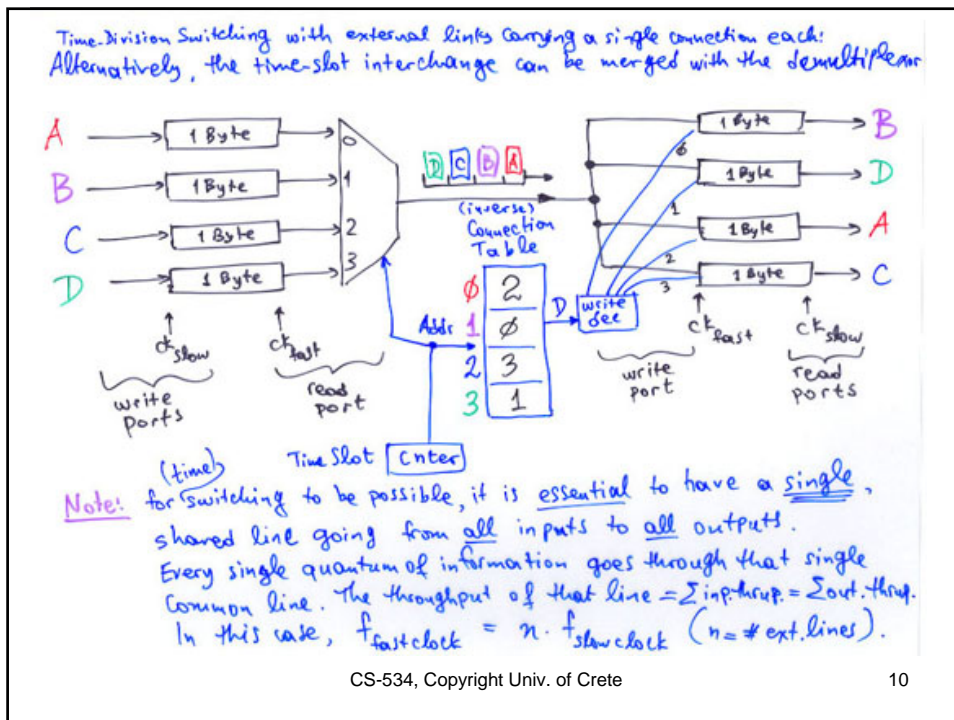 Time-Division Switching with external links carrying a single connection each:
Alternatively, the time-slot interchange can be merged with the demultiplexor
A
1 Byte
0
B
1 Byte
1
C
1 Byte
2
D
1 Byte
3
D C B A
(inverse)
Connection
Table
Addr
φ 2
1 φ
2 3
3 1
D
write
dec
φ
1
2
3
1 Byte
B
1 Byte
D
1 Byte
A
1 Byte
C
ck slow
ck fast
write
ports
read
port
ck fast
ck slow
write
port
read
ports
Time Slot Cnter
(time)
Note: for switching to be possible, it is essential to have a single,
shared line going from all inputs to all outputs.
Every single quantum of information goes through that single
common line. The throughput of that line = Σinp.thrup. = Σout.thrup.
In this case, f fast clock = n · f slow clock (n = # ext. lines).
CS-534, Copyright Univ. of Crete
10